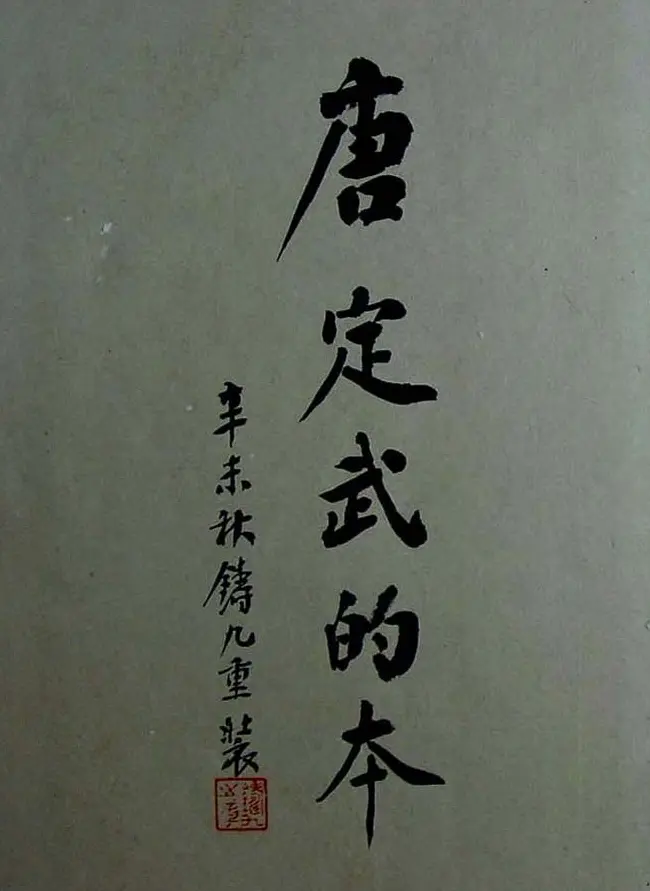 唐定武的本
辛未秋鑄九重裝